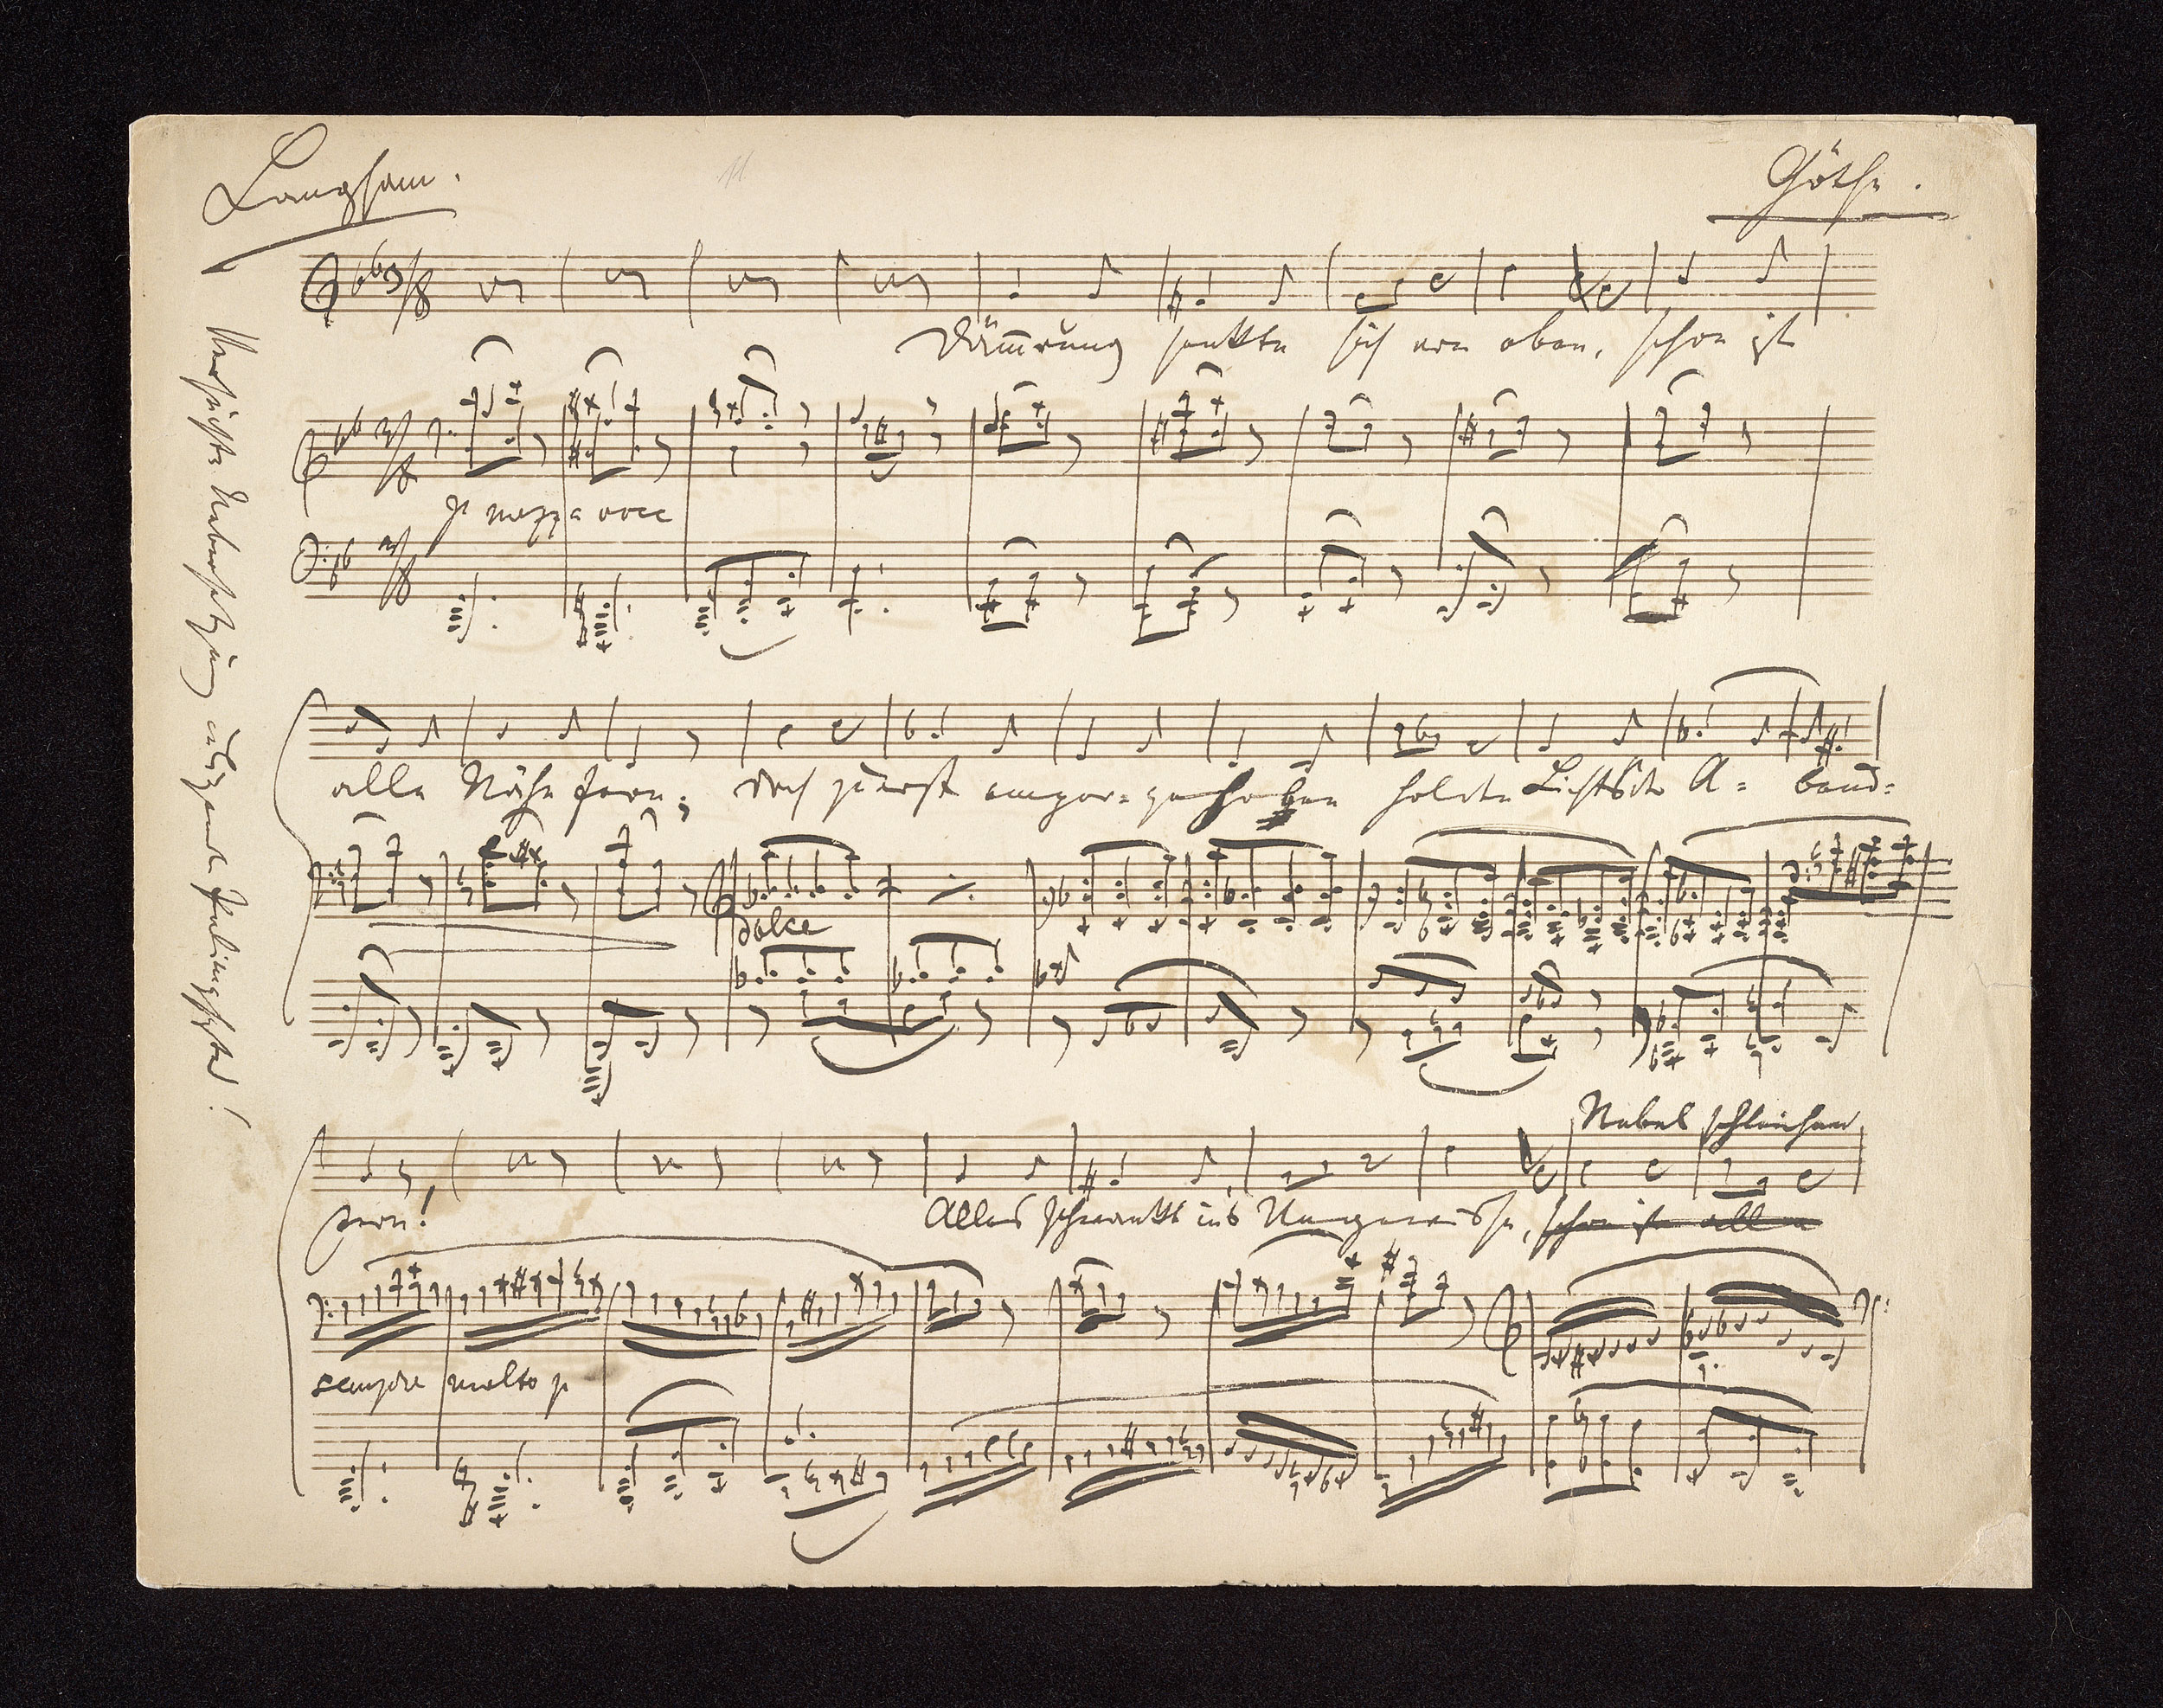 Langsam.
Göthe.
Dämrung senkte sich von oben, schon ist
p mezza voce
alle Nähe fern; doch zuerst emporgehoben holdes Lichts der Abend=
dolce
Nebel schleichen
stern! Alles schwankt ins Ungewisse, schon ist alle
sempre molto p